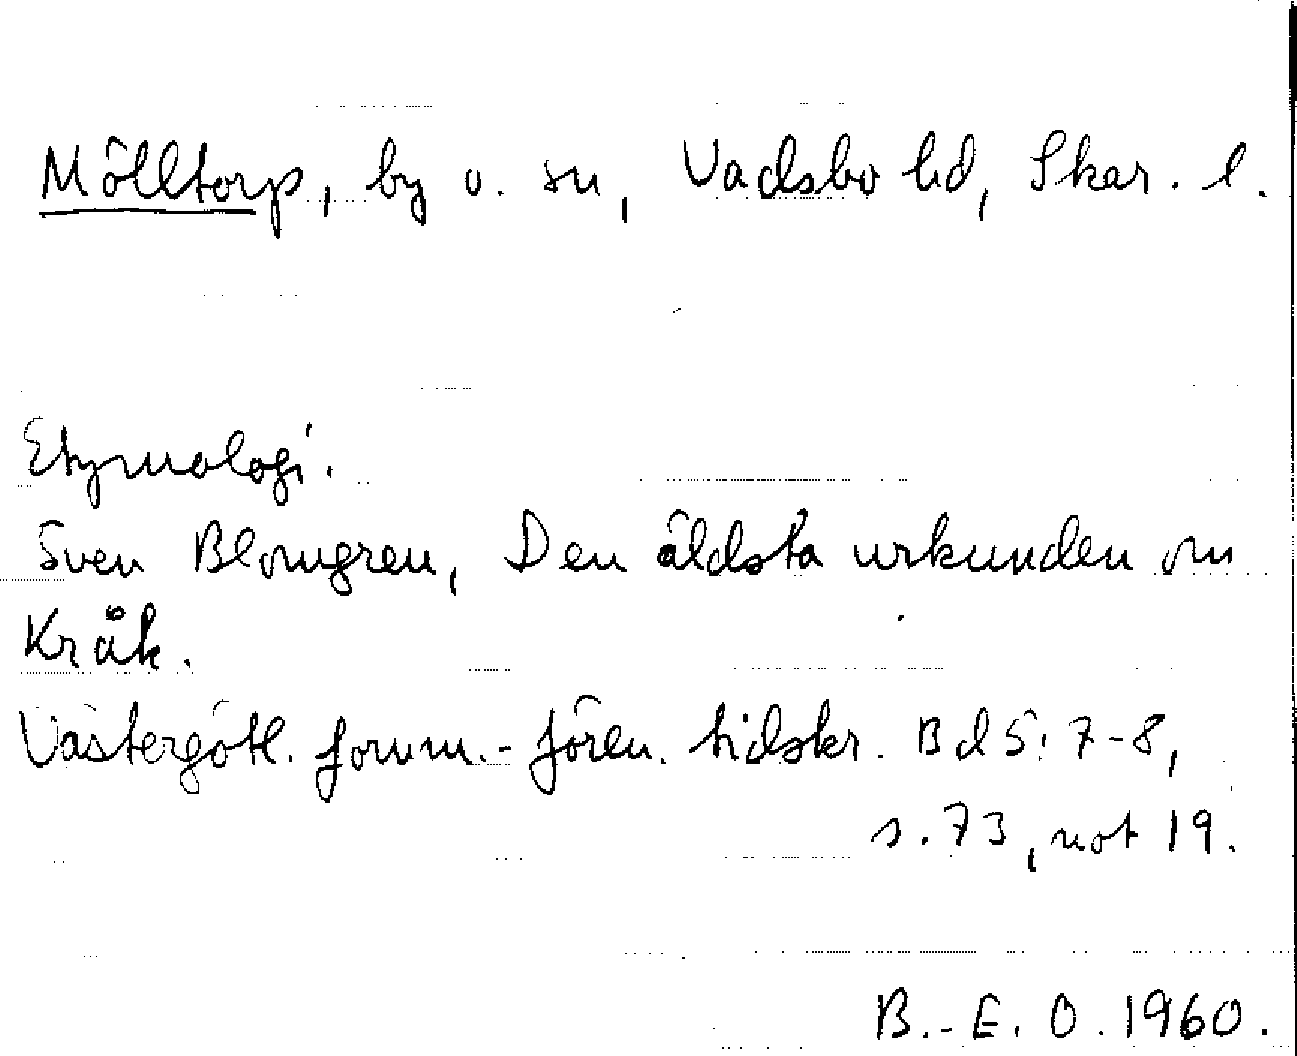 Mölltorp, by o. sn, Vadsbo hd, Skar. l.
Etymologi.
Sven Blomgren, Den äldsta urkunden om
Kråk.
Västergötl. fornm.-fören. tidskr. Bd 5: 7-8,
s. 73, not 19.
B.-E. O. 1960.